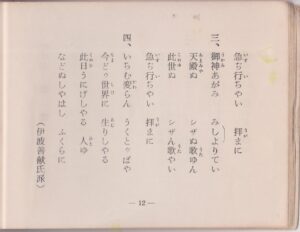 急ぢ行ちやい 拝まに
三、御神あがみ みしよりてい
天殿ぬ シザぬ歌ゆん
此世ぬ シザん歌やい
急ぢ行ちやい 拝まに
四、いちむ変らん うくとゥばや
今どゥ世界に 生りしやる
此日うにげしやる 人ゆ
などぬしやはし ふくらに
(伊波善献氏派)
— 12 —